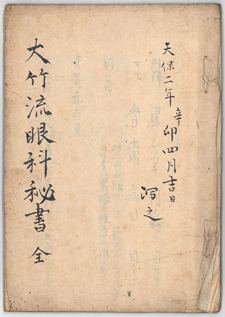 天保二年辛卯四月吉日
写之
大竹流眼科秘書 全